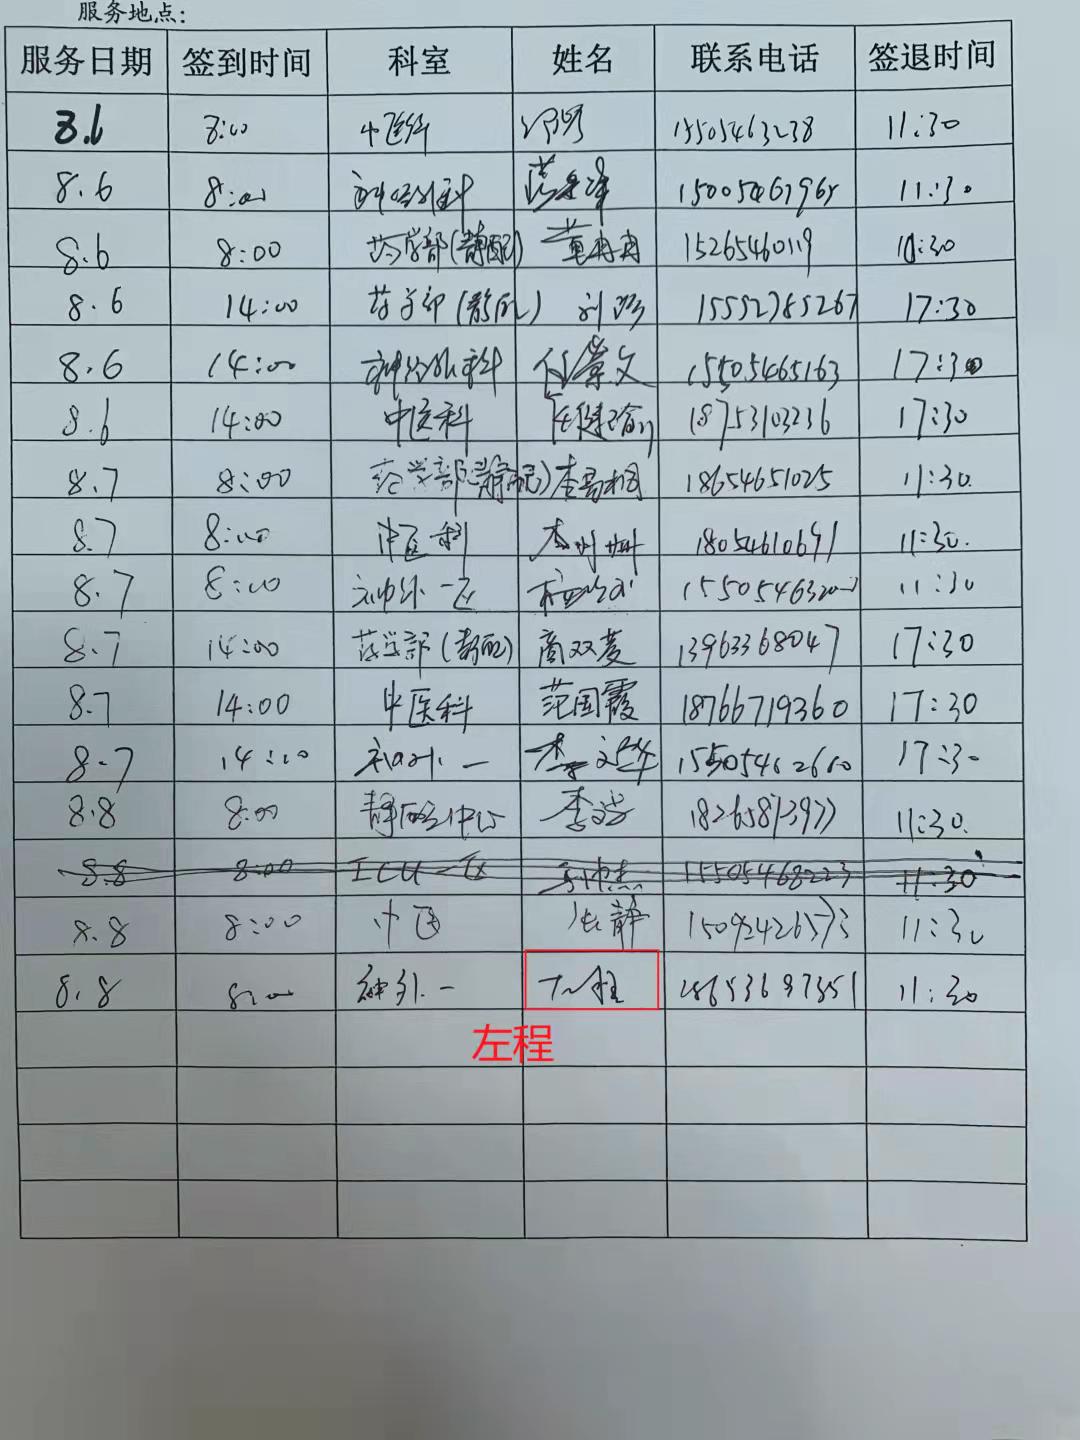 服务地点：
服务日期 签到时间 科室 姓名 联系电话 签退时间
8.6 8:00 中医科 15505463238 11:30
8.6 8:00 神经外科 11:30
8.6 8:00 药学部(静配) 董冉冉 15265460119 11:30
8.6 14:00 药学部(静配) 刘 15552785267 17:30
8.6 14:00 神经外科 付崇文 15505465163 17:30
8.6 14:00 中医科 18753103236 17:30
8.7 8:00 药学部(静配) 18654651025 11:30.
8.7 8:00 中医科 18054610691 11:30.
8.7 8:00 神外一区 11:30
8.7 14:00 药学部(静配) 商双菱 13963368047 17:30
8.7 14:00 中医科 范国霞 18766719360 17:30
8.7 14:00 神外一 李文华 15505462660 17:30
8.8 8:00 静配中心 李 18265873977 11:30.
8.8 8:00 ICU一区 15505468223 11:30
8.8 8:00 中医 张静 15092426573 11:30
8.8 8:00 神外一 左程 18653697351 11:30
左程